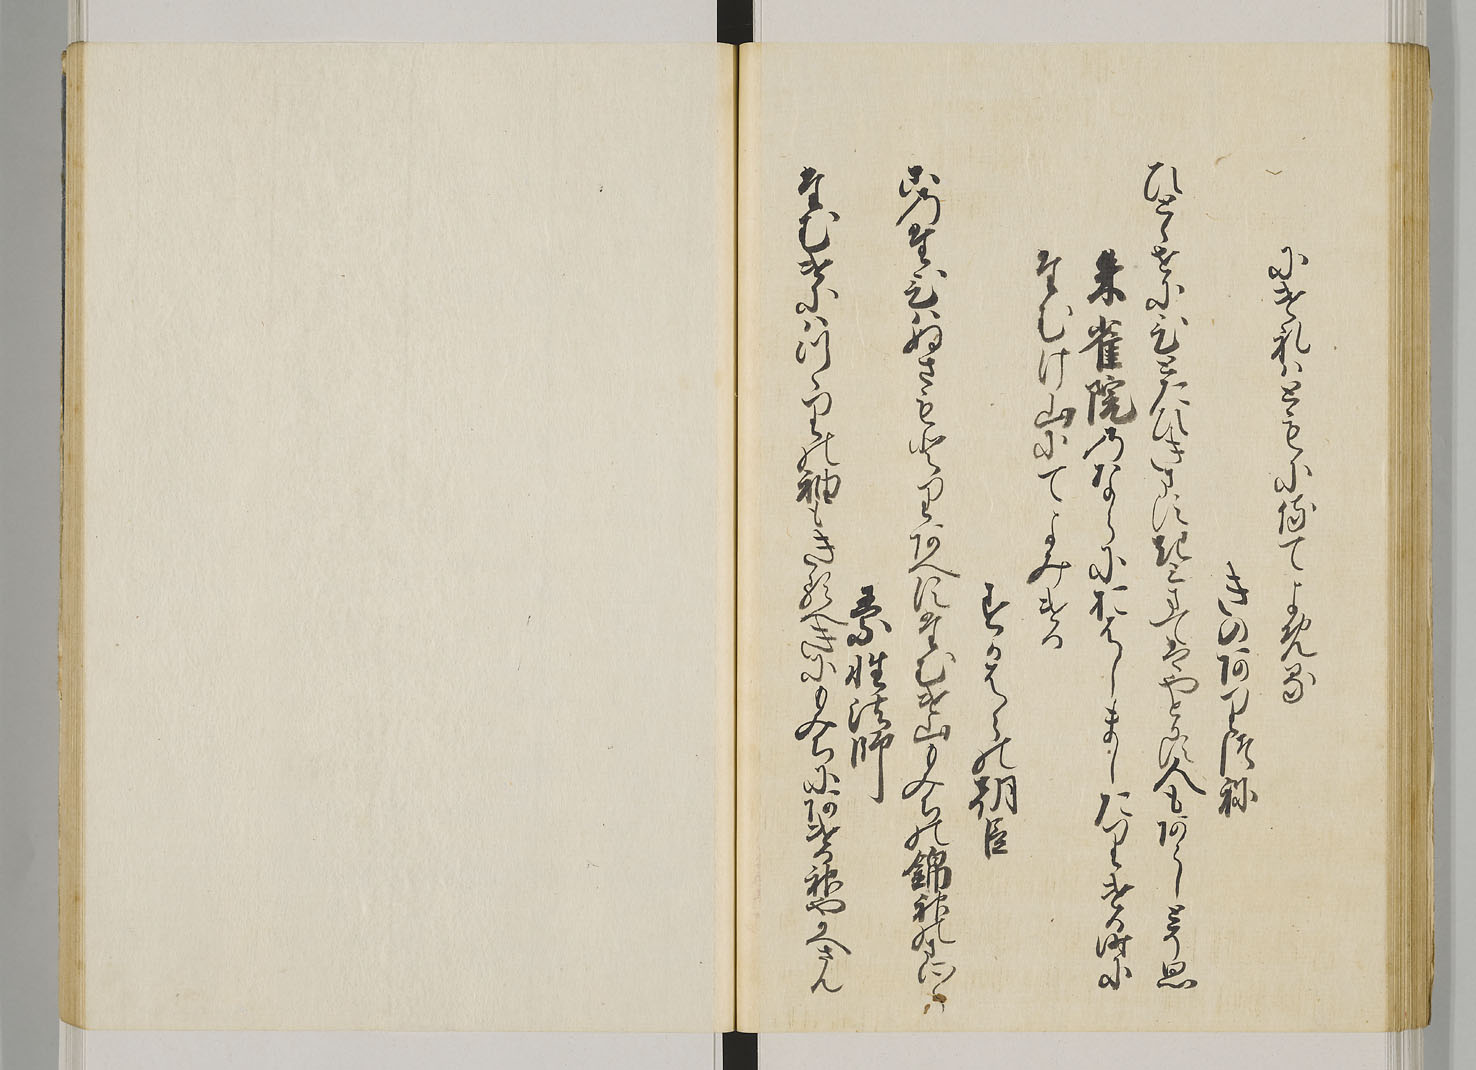 にけれはともに侍てよめる
きのありつね
ひとゝせにひとたひきますきみまてはやとかす人もあらしとそ思
朱雀院のならにおはしましたりける時に
たむけ山にてよみける
すかはらの朝臣
このたひはぬさもとりあへすたむけ山もみちの錦神のまに〱
素性法師
たむけにはつゝりの袖もきるへきにもみちにあける神やかへさん